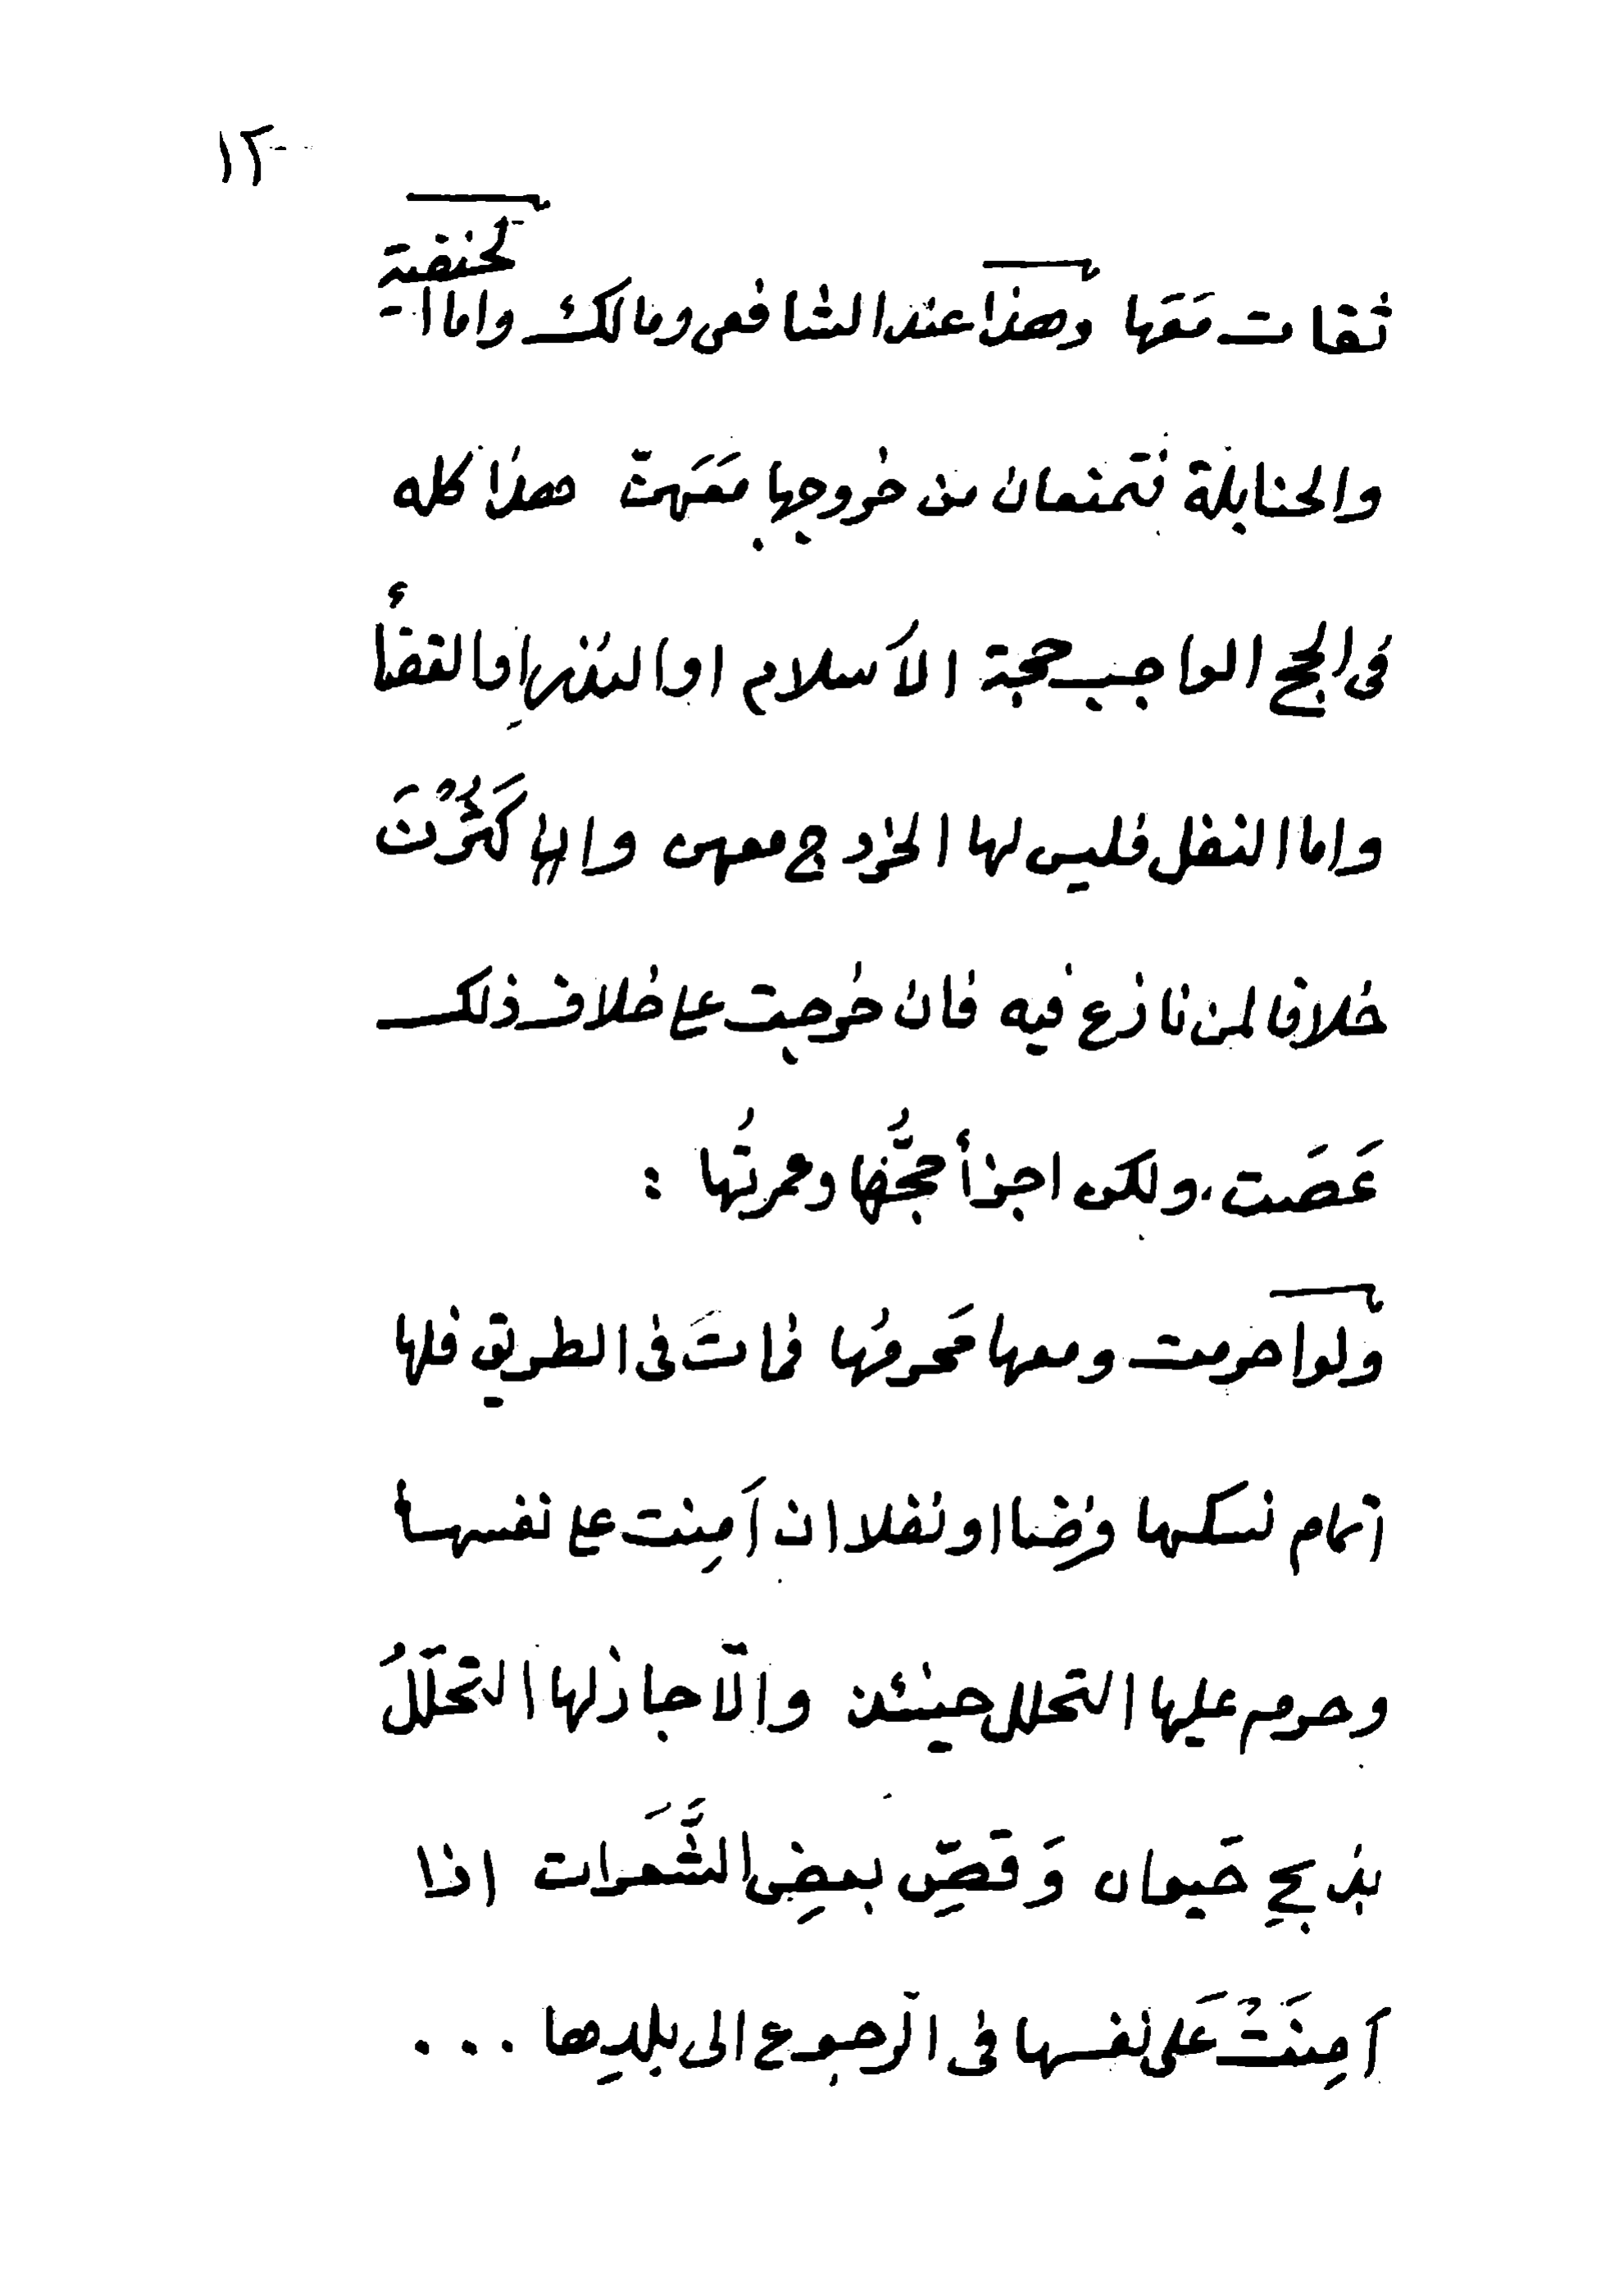 ١٢
ثقات مَعَها وهذا عند الشافعى ومالك واما الحنفية
والحنابلة فتمنعان من خروجها مَعَهنّ هذا كله
فى الحج الواجب حجة الاَسلام او النذر او القضأ
واما النفل فليس لها الخروج معهن وان كَثُرْنَ
خلافا لمن نازع فيه فان خرجت على خلاف ذلك
عَصَت، ولكن اجزأ حجُّها وعمرتُها :
ولو احرمت ومعها مَحرمُها فماتَ فى الطريق فلها
اتمام نسكها فرضا او نفلا ان اَمِنت على نفسها
وحرم عليها التحلل حينئذ والّا جاز لها التحلّلُ
بذبحِ حَيوان وَقصِّ بعضِ الشَّعَرات اذا
اَمِنَتْ عَلى نفسها فى الرّجوع الى بلدِها ...